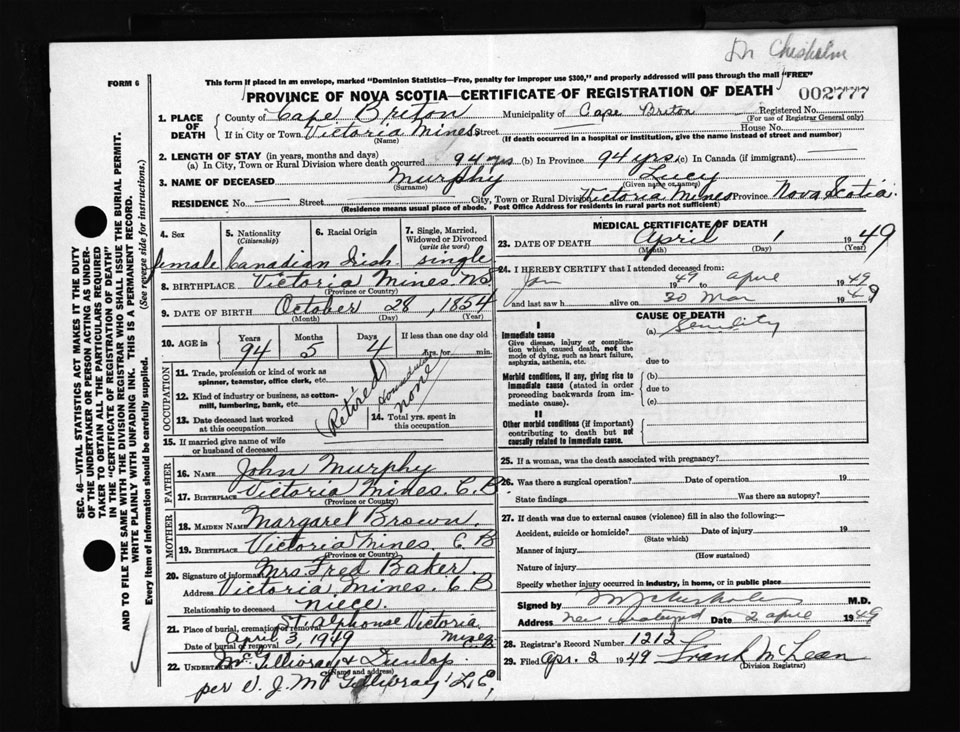 Dr Chisholm
FORM 6
This form if placed in an envelope, marked "Dominion Statistics—Free, penalty for improper use $300," and properly addressed will pass through the mail "FREE"
PROVINCE OF NOVA SCOTIA—CERTIFICATE OF REGISTRATION OF DEATH
002777
1. PLACE OF DEATH
County of Cape Briton Municipality of Cape Briton Registered No.
(For use of Registrar General only)
If in City or Town Victoria Mines Street House No.
(Name) (If death occurred in a hospital or institution, give the name instead of street and number)
2. LENGTH OF STAY (in years, months and days)
(a) In City, Town or Rural Division where death occurred 94 yrs (b) In Province 94 yrs. (c) In Canada (if immigrant) —
3. NAME OF DECEASED Murphy Lucy
(Surname) (Given name or names)
RESIDENCE No. — Street City, Town or Rural Division Victoria Mines Province Nova Scotia.
(Residence means usual place of abode. Post Office Address for residents in rural parts not sufficient)
4. Sex 5. Nationality 6. Racial Origin 7. Single, Married,
(Citizenship) Widowed or Divorced
(write the word)
female Canadian Irish single
8. BIRTHPLACE Victoria Mines. NS
(Province or Country)
9. DATE OF BIRTH October 28, 1854
(Month) (Day) (Year)
10. AGE in Years Months Days If less than one day old
94 5 4 hrs. or min.
OCCUPATION
11. Trade, profession or kind of work as
spinner, teamster, office clerk, etc.
12. Kind of industry or business, as cotton-
mill, lumbering, bank, etc.
13. Date deceased last worked
at this occupation
14. Total yrs. spent in
this occupation
(Retired)
none
15. If married give name of wife
or husband of deceased
FATHER
16. NAME John Murphy
17. BIRTHPLACE Victoria Mines. C.B.
(Province or Country)
MOTHER
18. MAIDEN NAME Margaret Brown.
19. BIRTHPLACE Victoria Mines. C B
(Province or Country)
20. Signature of informant Mrs. Fred Baker
Address Victoria Mines. C B
Relationship to deceased niece.
21. Place of burial, cremation or removal St. Alphonse Victoria Mines C.B.
Date of burial or removal April 3, 1949
22. UNDERTAKER McGillivray & Dunlop.
(Name and address)
per V. J. McGillivray L.E,
MEDICAL CERTIFICATE OF DEATH
23. DATE OF DEATH April 1 1949
(Month) (Day) (Year)
24. I HEREBY CERTIFY that I attended deceased from:
Jan 1949 to april 1949
and last saw h alive on 30 Mar 1949
CAUSE OF DEATH
I
Immediate cause
Give disease, injury or complica-
tion which caused death, not the
mode of dying, such as heart failure,
asphyxia, asthenia, etc.
(a) Senility
due to
Morbid conditions, if any, giving rise to
immediate cause (stated in order
proceeding backwards from im-
mediate cause).
(b)
due to
(c)
II
Other morbid conditions (if important)
contributing to death but not
causally related to immediate cause.
25. If a woman, was the death associated with pregnancy?
26. Was there a surgical operation? Date of operation 19
State findings Was there an autopsy?
27. If death was due to external causes (violence) fill in also the following:—
Accident, suicide or homicide? Date of injury 19
(State which)
Manner of injury
(How sustained)
Nature of injury
Specify whether injury occurred in industry, in home, or in public place
Signed by M Chisholm M.D.
Address New Waterford Date 2 april 1949
28. Registrar's Record Number 1212
29. Filed Apr. 2 1949 Frank McLean
(Division Registrar)
SEC. 46—VITAL STATISTICS ACT MAKES IT THE DUTY
OF THE UNDERTAKER OR PERSON ACTING AS UNDER-
TAKER TO OBTAIN ALL THE PARTICULARS REQUIRED
IN THE "CERTIFICATE OF REGISTRATION OF DEATH"
AND TO FILE THE SAME WITH THE DIVISION REGISTRAR WHO SHALL ISSUE THE BURIAL PERMIT.
WRITE PLAINLY WITH UNFADING INK. THIS IS A PERMANENT RECORD.
Every item of information should be carefully supplied. (See reverse side for instructions.)